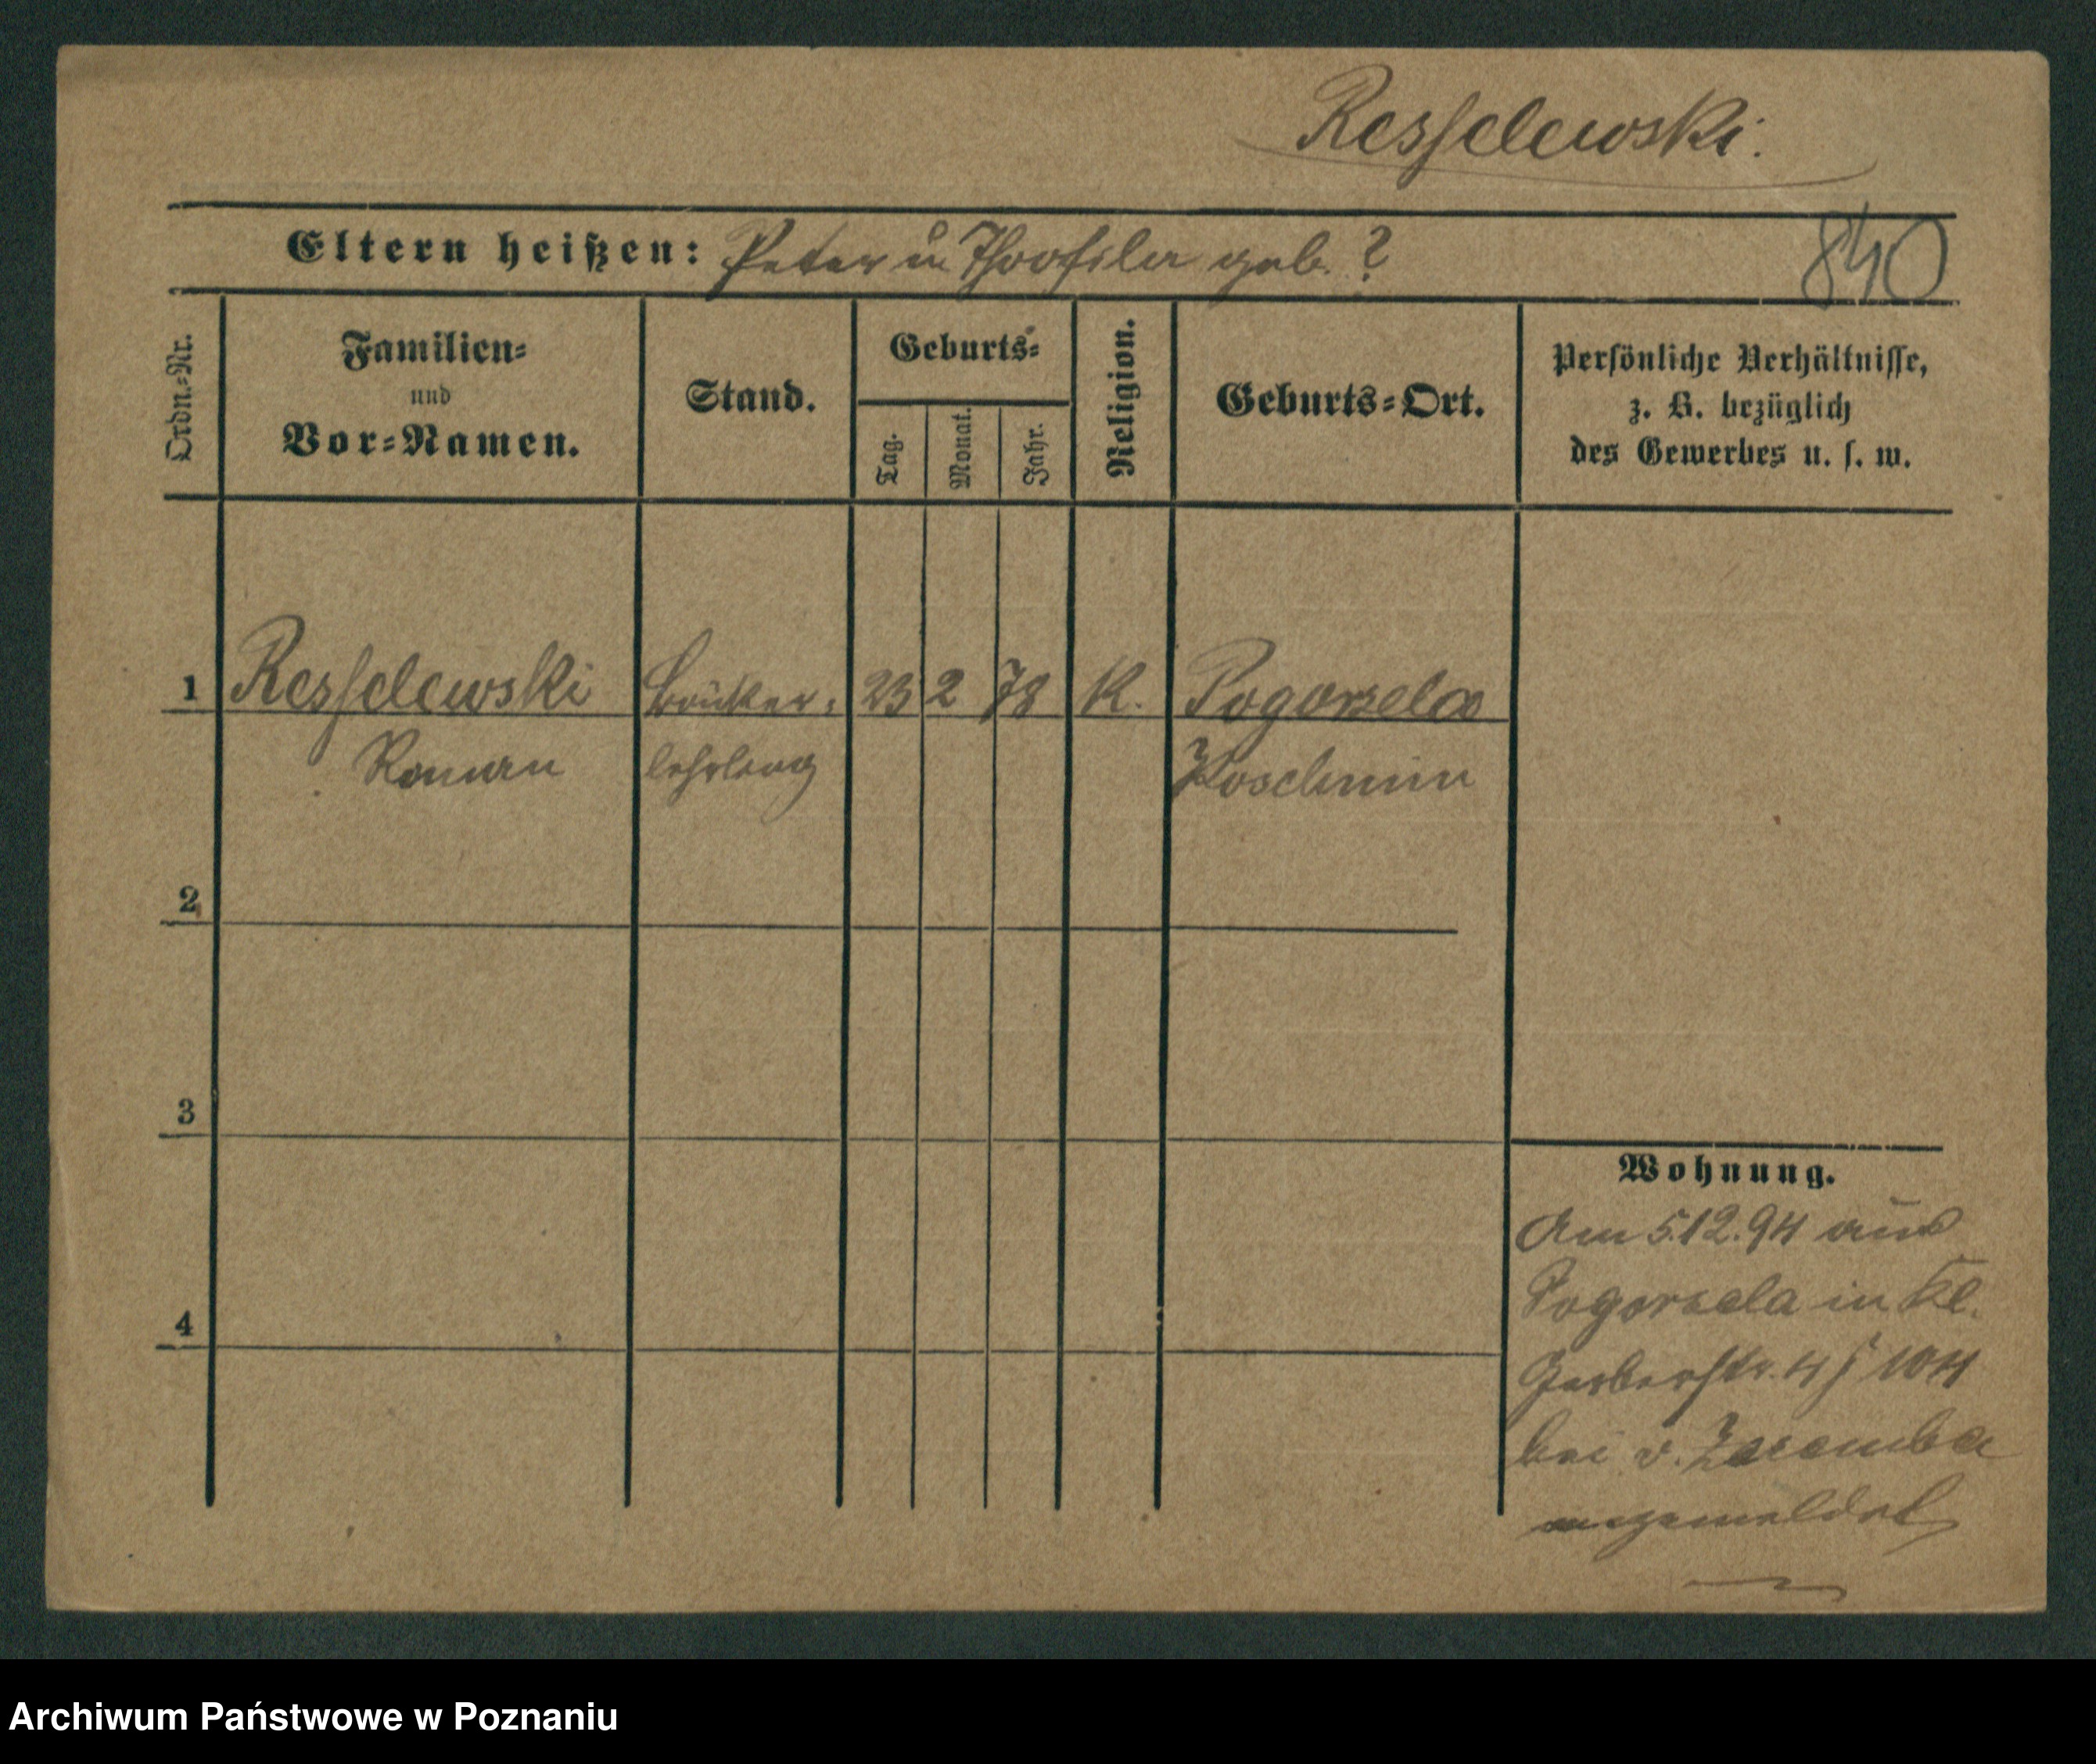 Resselewski.
Eltern heißen: Peter u Theofila geb. ?
840
Ordn.=Nr.
Familien=
und
Vor=Namen.
Stand.
Geburts=
Tag.
Monat.
Jahr.
Religion.
Geburts=Ort.
Persönliche Verhältnisse,
z. B. bezüglich
des Gewerbes u. s. w.
1 Resselewski Bäcker= 23 2 78 K. Pogorzela
Roman lehrling Koschmin
2
3
4
Wohnung.
Am 5.12.94 aus
Pogorzela in Kl.
Gerberstr. 4
bei v. Zaremba
angemeldet
Archiwum Państwowe w Poznaniu